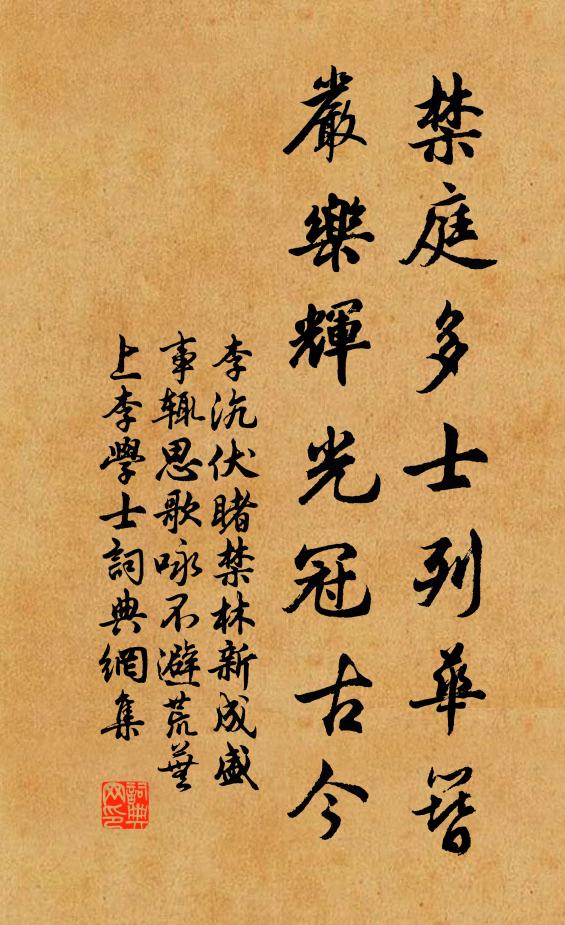 禁庭多士列華簪
嚴樂輝光冠古今
李沆伏睹禁林新成盛
事輒思歌咏不避荒蕪
上李學士詞典網集
詞典網印